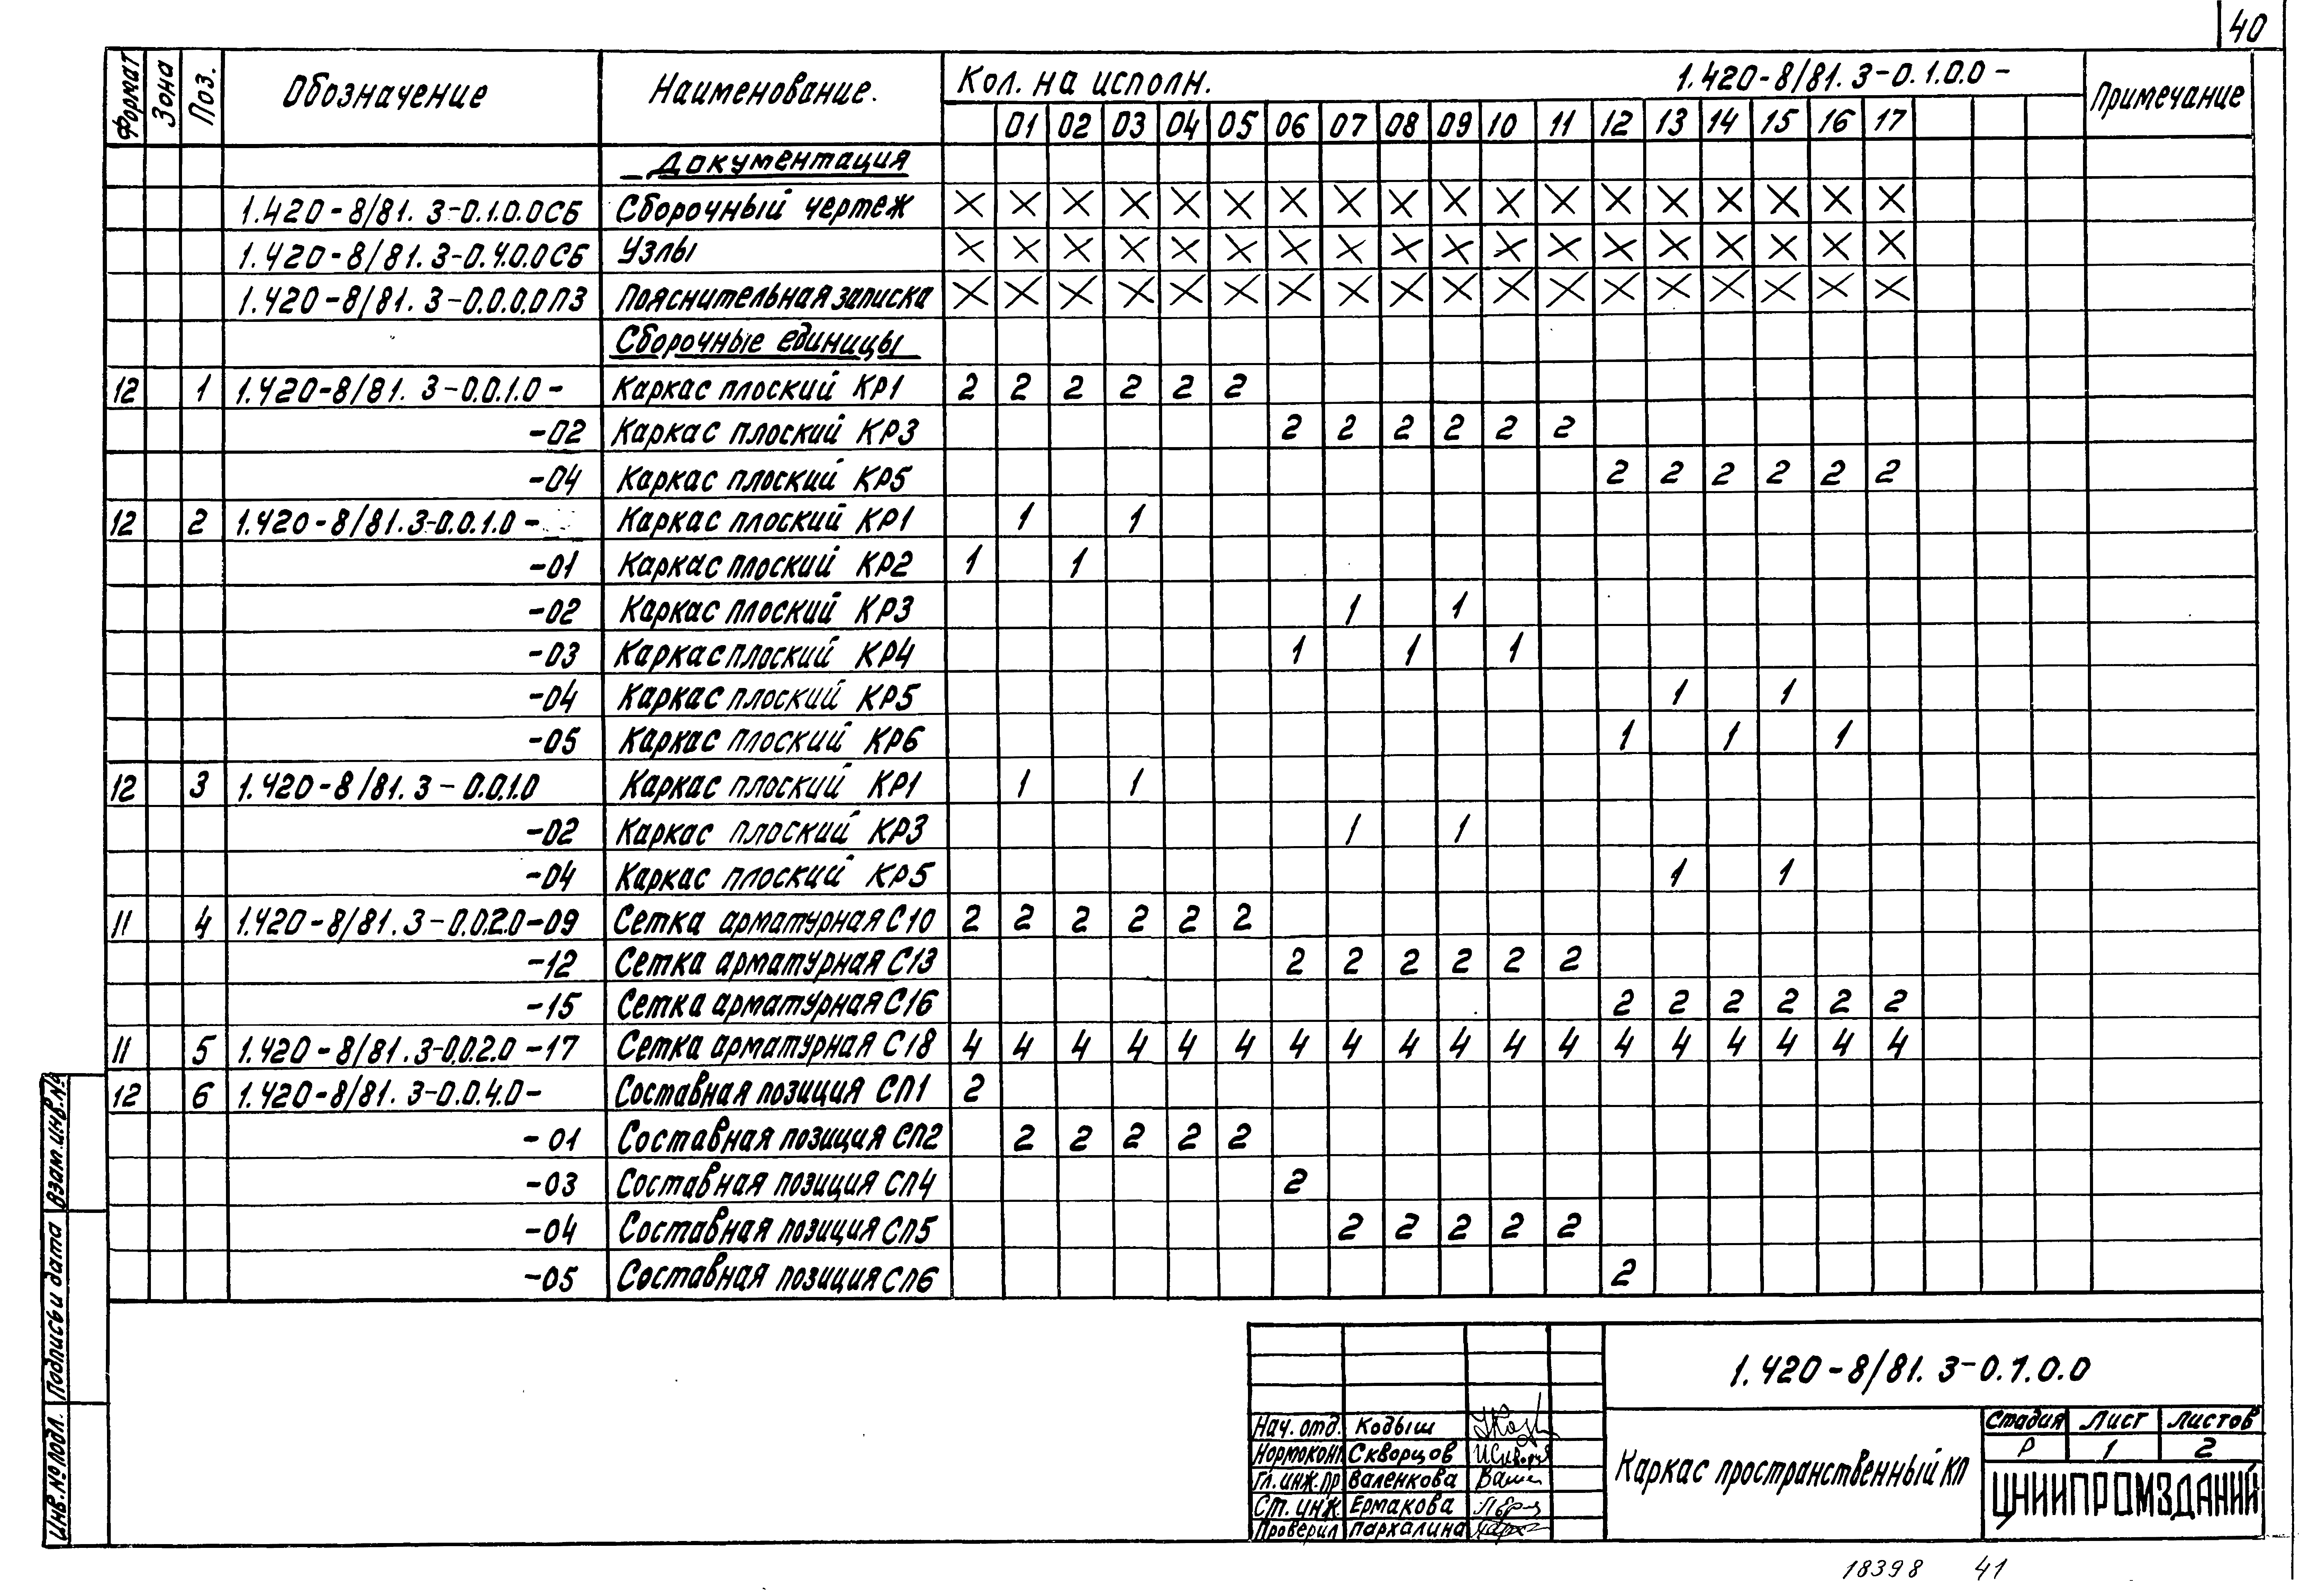 40
Формат Зона Поз. Обозначение Наименование. Кол. на исполн. 1.420-8/81.3-0.1.0.0- Примечание
01 02 03 04 05 06 07 08 09 10 11 12 13 14 15 16 17
Документация
1.420-8/81.3-0.1.0.0СБ Сборочный чертеж X X X X X X X X X X X X X X X X X X
1.420-8/81.3-0.4.0.0СБ Узлы X X X X X X X X X X X X X X X X X X
1.420-8/81.3-0.0.0.0ПЗ Пояснительная записка X X X X X X X X X X X X X X X X X X
Сборочные единицы
12 1 1.420-8/81.3-0.0.1.0- Каркас плоский КР1 2 2 2 2 2 2
-02 Каркас плоский КР3 2 2 2 2 2 2
-04 Каркас плоский КР5 2 2 2 2 2 2
12 2 1.420-8/81.3-0.0.1.0- Каркас плоский КР1 1 1
-01 Каркас плоский КР2 1 1
-02 Каркас плоский КР3 1 1
-03 Каркас плоский КР4 1 1 1
-04 Каркас плоский КР5 1 1
-05 Каркас плоский КР6 1 1 1
12 3 1.420-8/81.3-0.0.1.0 Каркас плоский КР1 1 1
-02 Каркас плоский КР3 1 1
-04 Каркас плоский КР5 1 1
11 4 1.420-8/81.3-0.0.2.0-09 Сетка арматурная С10 2 2 2 2 2 2
-12 Сетка арматурная С13 2 2 2 2 2 2
-15 Сетка арматурная С16 2 2 2 2 2 2
11 5 1.420-8/81.3-0.0.2.0-17 Сетка арматурная С18 4 4 4 4 4 4 4 4 4 4 4 4 4 4 4 4 4 4
12 6 1.420-8/81.3-0.0.4.0- Составная позиция СП1 2
-01 Составная позиция СП2 2 2 2 2 2
-03 Составная позиция СП4 2
-04 Составная позиция СП5 2 2 2 2 2
-05 Составная позиция СП6 2
Взам. инв. №
Подпись и дата
Инв. № подл.
1.420-8/81.3-0.1.0.0
Нач. отд. Кодыш
Нормоконт Скворцов
Гл. инж. пр Валенкова
Ст. инж. Ермакова
Проверил Пархалина
Каркас пространственный КП
Стадия Лист Листов
Р 1 2
ЦНИИПРОМЗДАНИЙ
18398 41